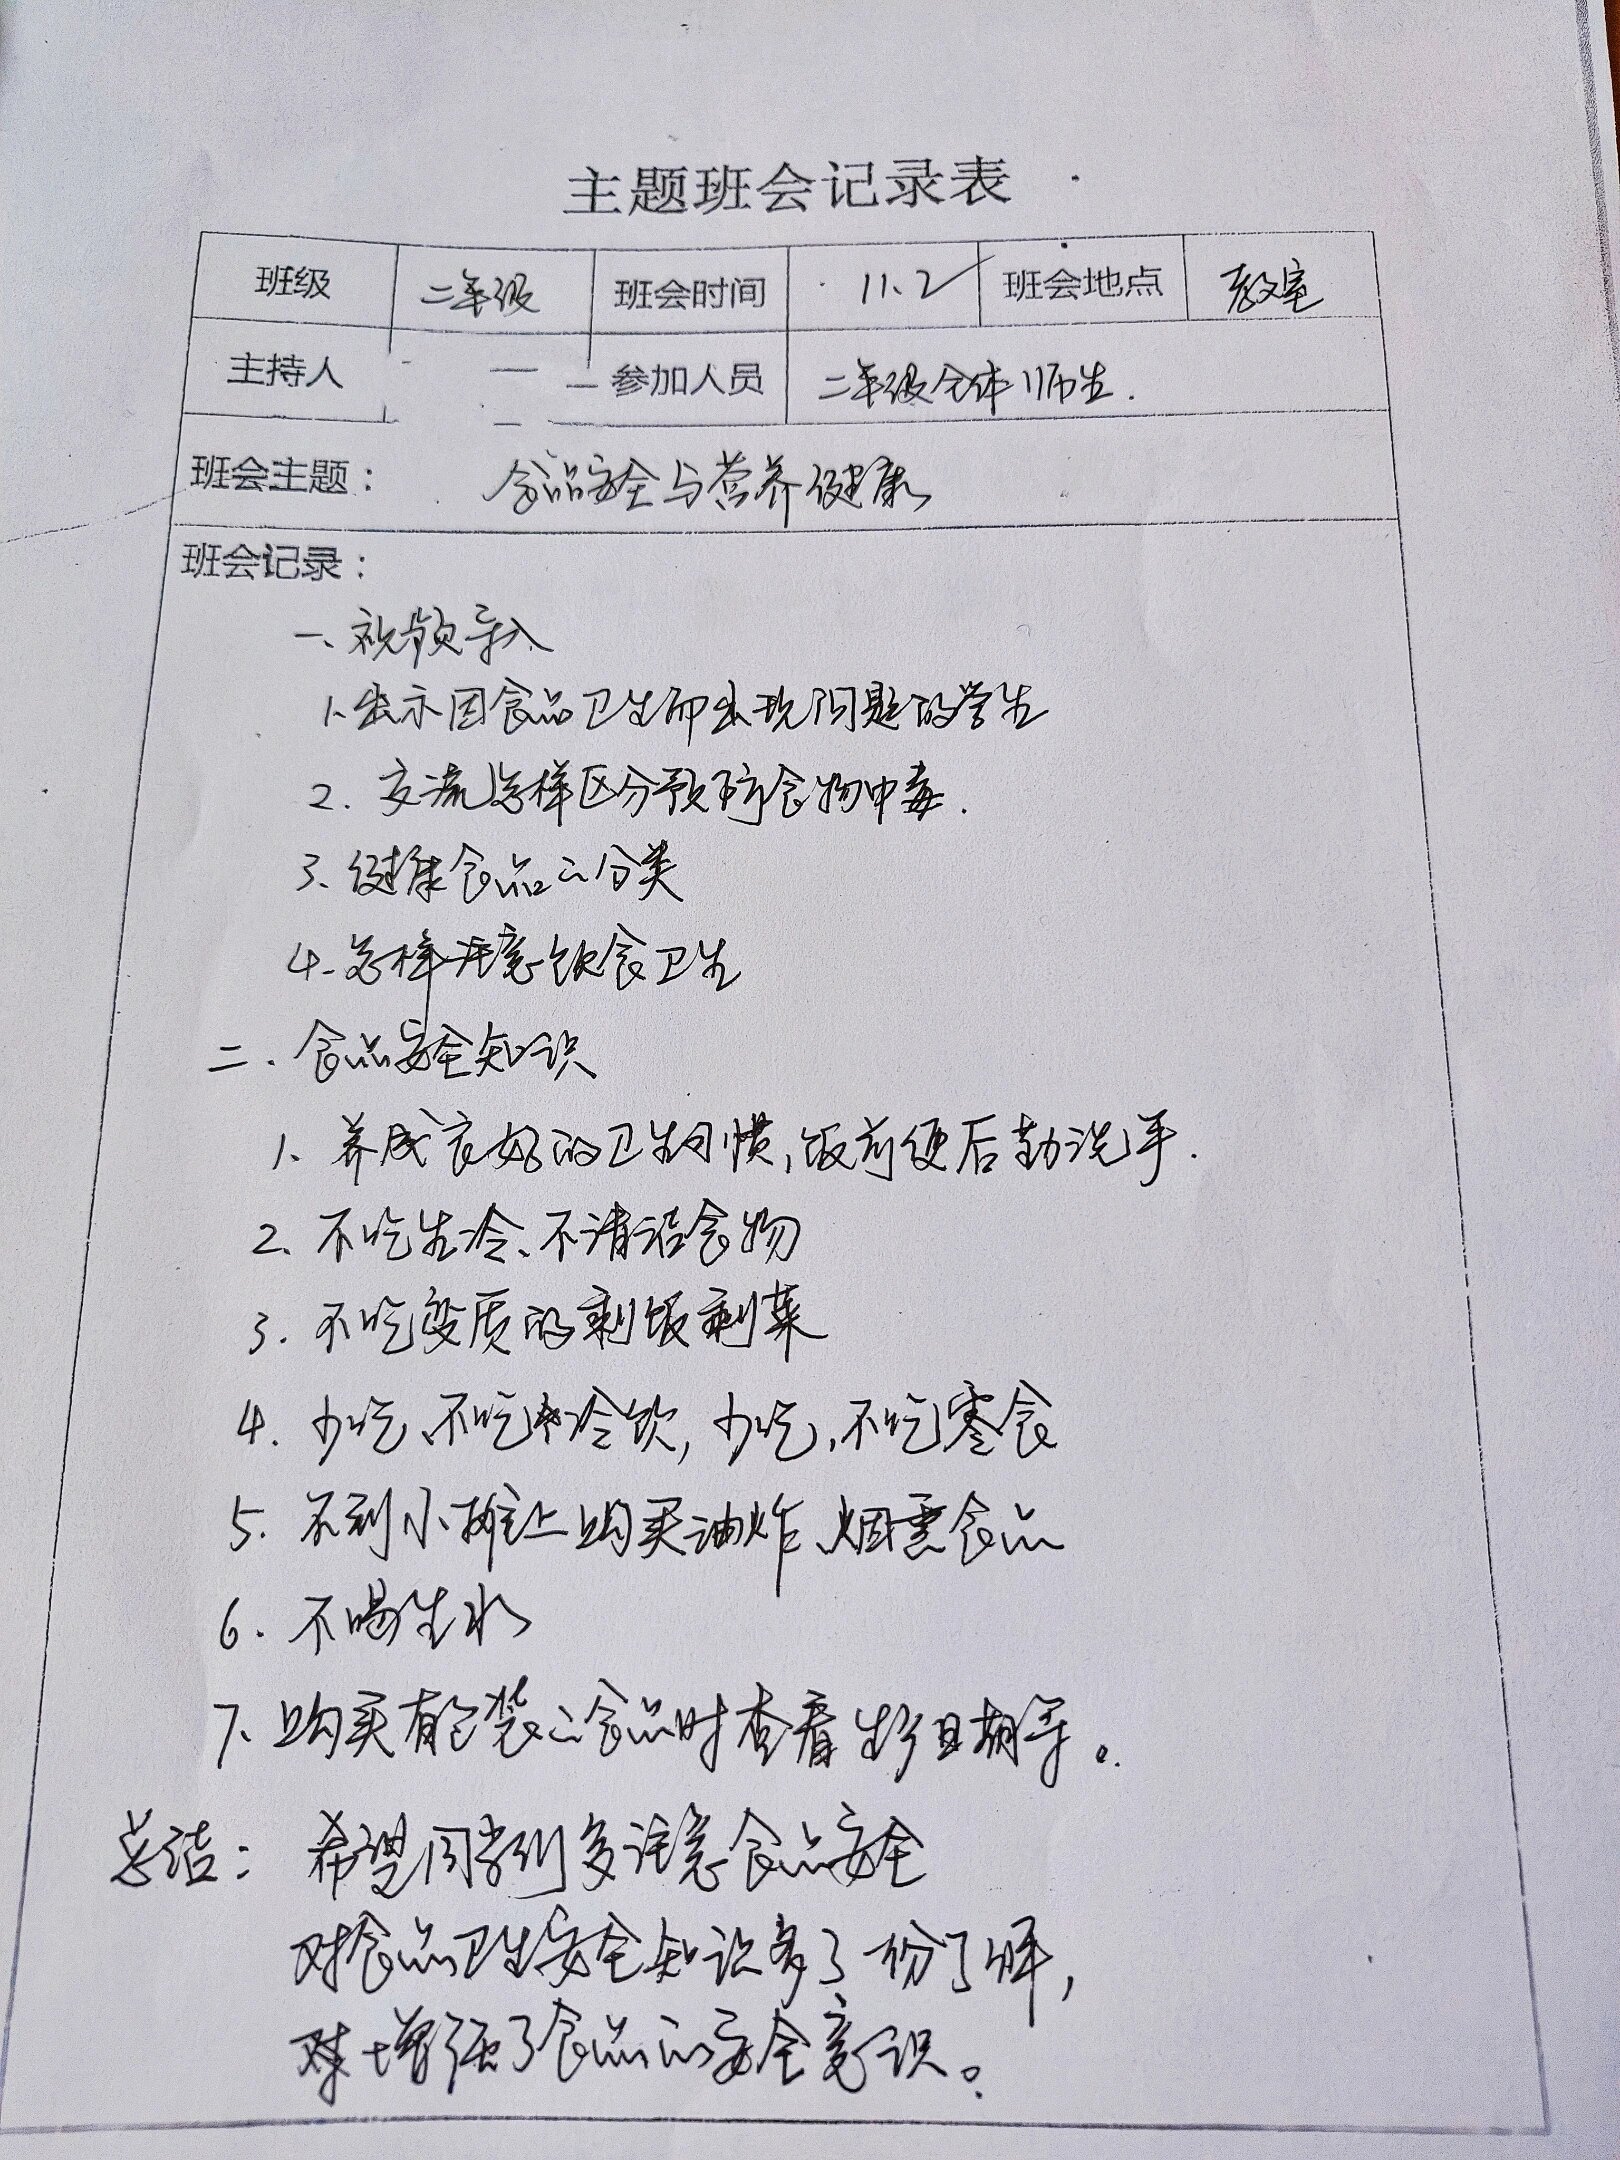 主题班会记录表
班级 二年级 班会时间 11.2 班会地点 教室
主持人 参加人员 二年级全体师生.
班会主题： 食品安全与营养健康
班会记录：
一、视频导入
1、出示因食品卫生而出现问题的学生
2. 交流怎样区分预防食物中毒.
3、健康食品的分类
4、怎样注意饮食卫生
二.食品安全知识
1、养成良好的卫生习惯,饭前便后勤洗手.
2、不吃生冷、不清洁食物
3.不吃变质的剩饭剩菜
4.少吃、不吃冷饮,少吃,不吃零食
5.不到小摊上购买油炸、烟熏食品
6.不喝生水
7.购买有包装的食品时查看生产日期等。
总结：希望同学们多注意食品安全
对食品卫生安全知识多了一份了解,
增强了食品的安全意识。